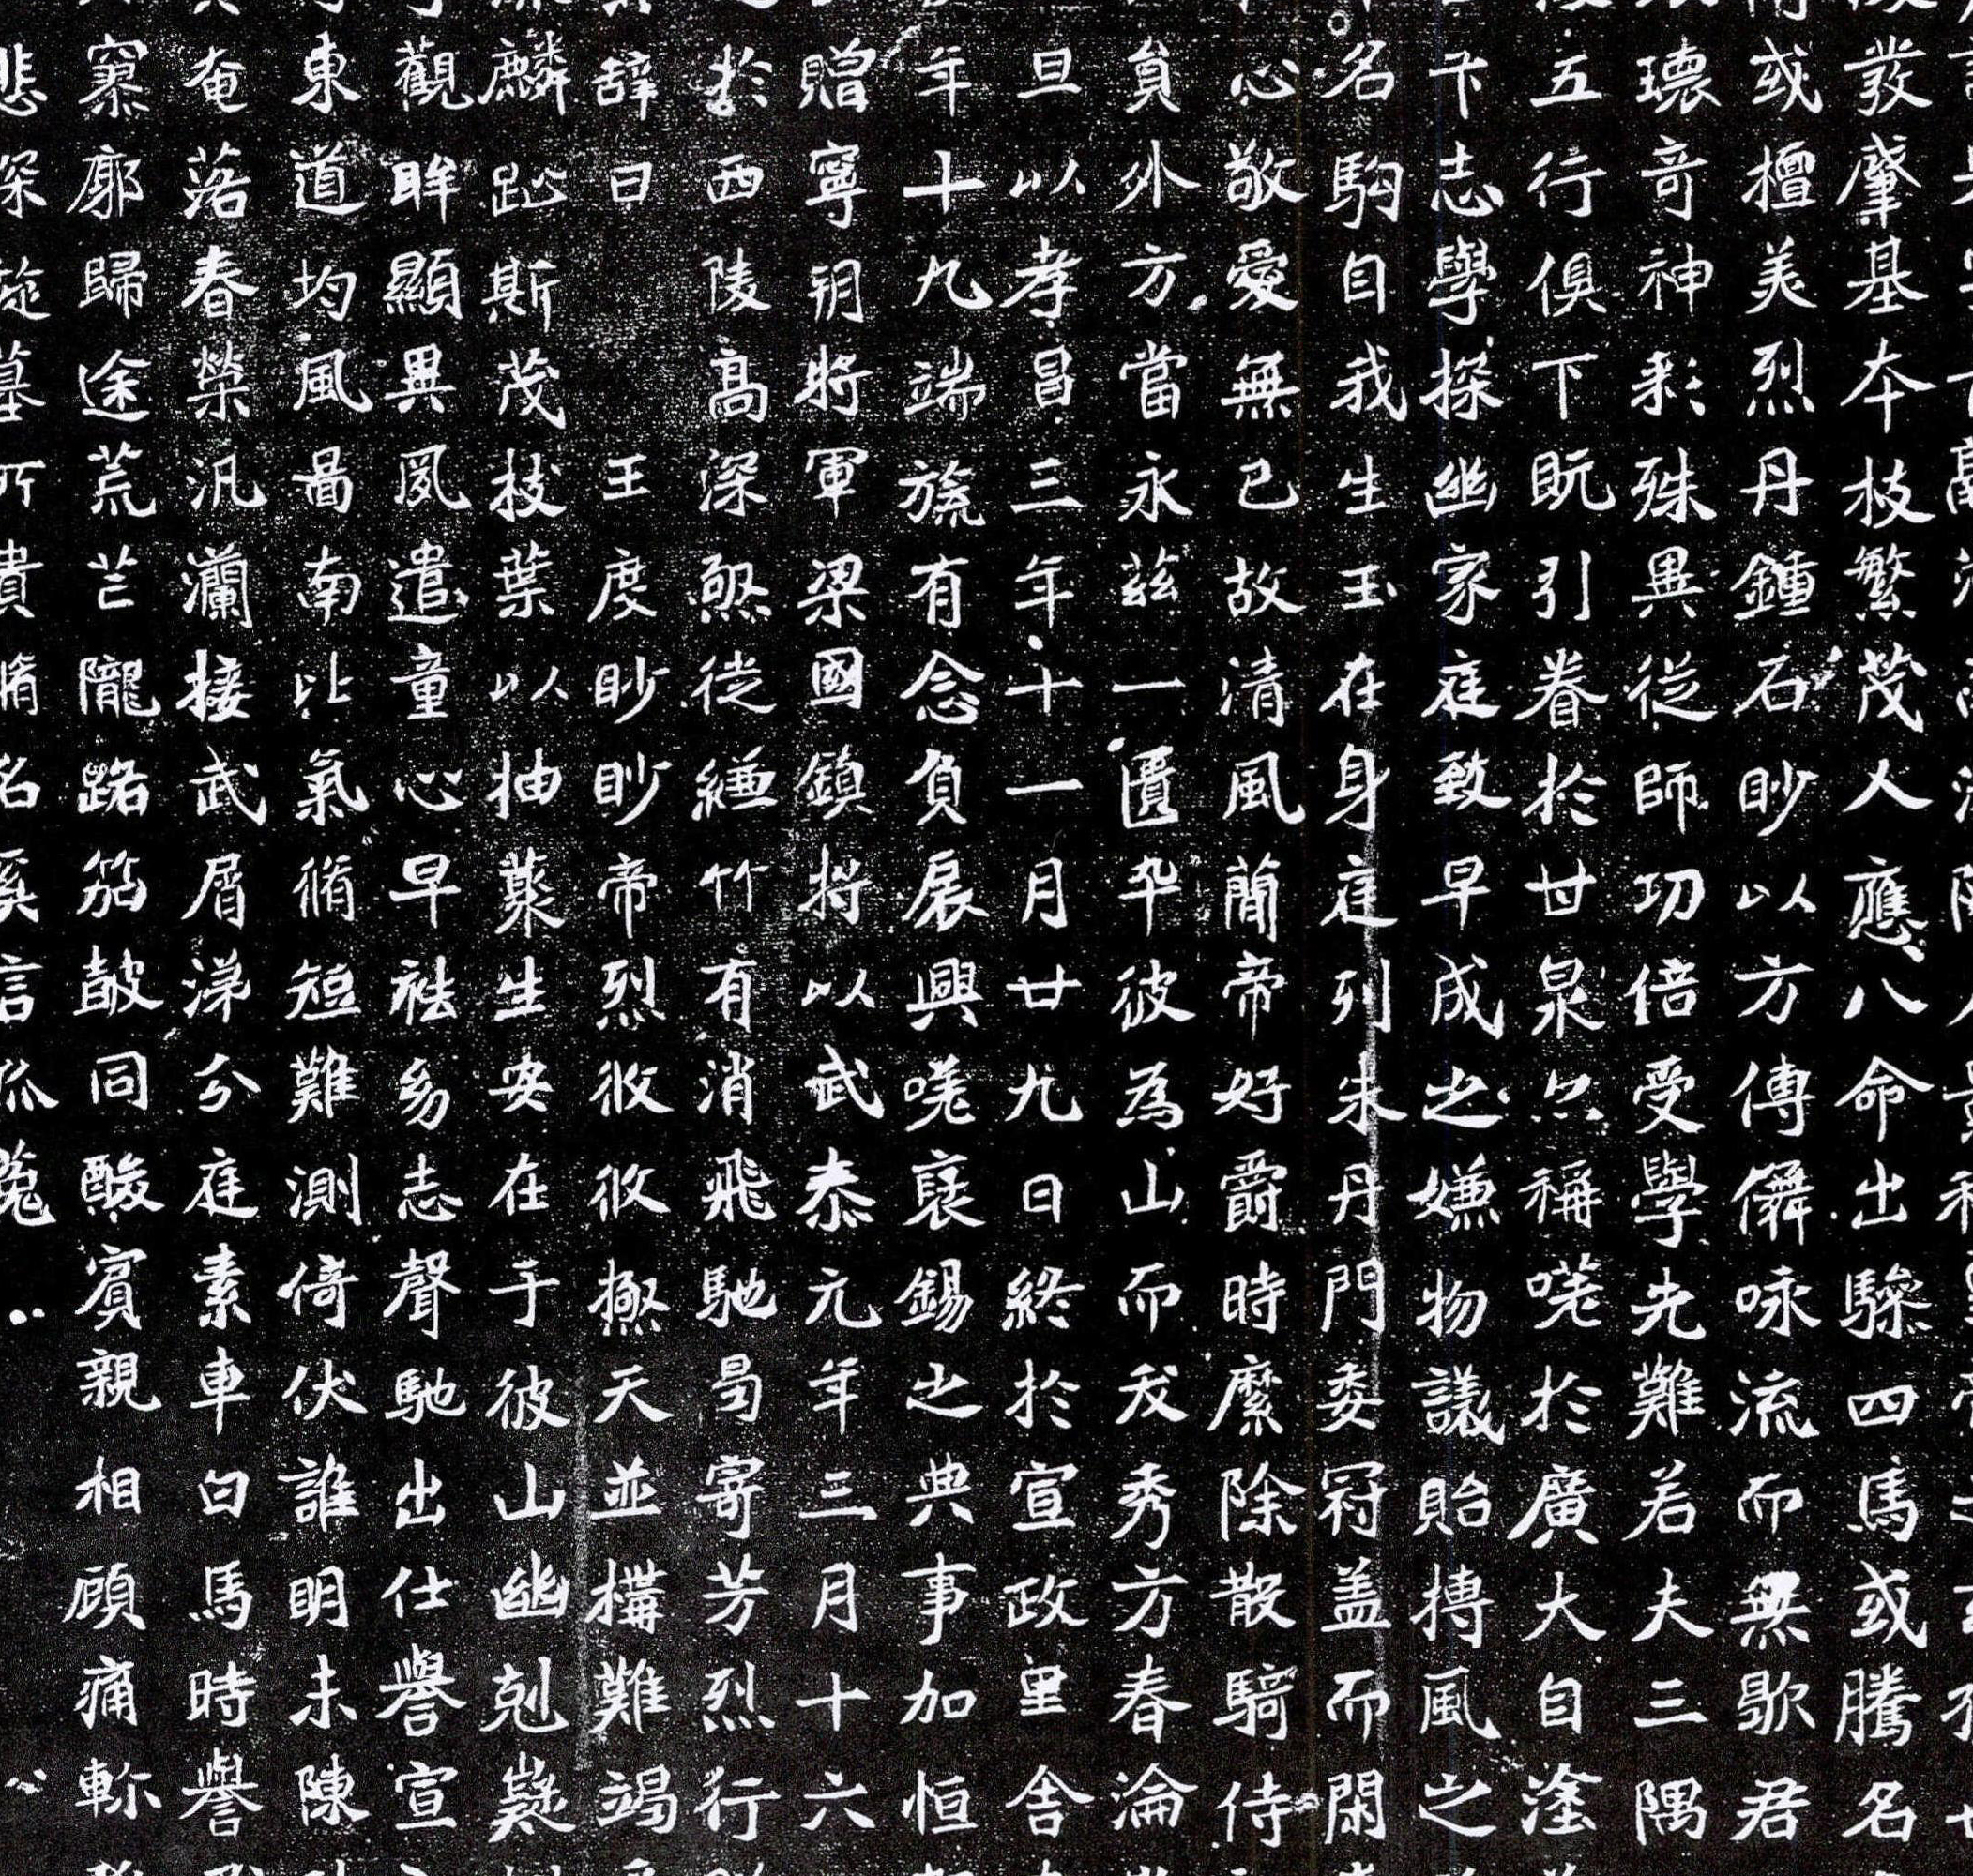 發肇基本枝繁茂人應八命出驂四馬或騰名
或檀美烈丹鍾石眇以方傳儛咏流而無歌君
瓌奇神彩殊異從師功倍受學先難若夫三隅
五行俱下既引眷於甘泉尒稱嗟於廣大自淫
卞志學探幽家庭致早成之嫌物議貽摶風之
名駒自我生玉在身庭列朱丹門委冠盖而閑
心敬愛無已故清風蕳帝好爵時縻除散騎侍
員外方當永茲一匱卒彼為山而我秀方春淪
旦以孝昌三年十一月廿九日終於宣政里舍
年十九端旒有念負扆興嗟褒錫之典事加恒
贈寧朔將軍梁國鎮將以武泰元年三月十六
於西陵高深煞從縑竹有消飛馳曷寄芳烈行
辞曰
王度眇眇帝烈攸攸撫天並構難竭
麟趾斯茂枝葉以抽蘂生安在于彼山幽剋嶷
觀眸顯異夙遣童心早袪幼志聲馳出仕譽宣
東道均風啚南比氣脩短難測倚伏誰明未陳
奄落春榮汎瀾接武屑涕分庭素車白馬時譽
寥廓歸途荒芒隴路笳鼓同酸賓親相顧痛軫